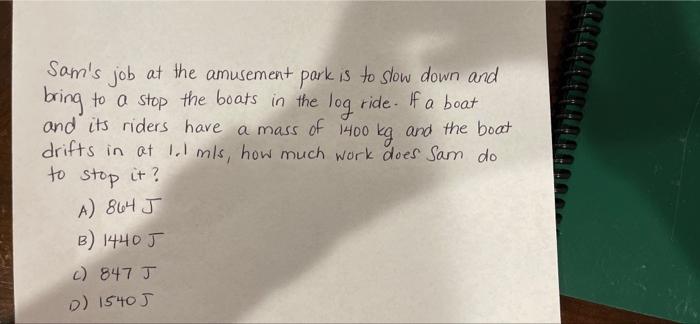 Sam's job at the amusement park is to slow down and
bring to a stop the boats in the log ride. If a boat
and its riders have a mass of 1400 kg and the boat
drifts in at 1.1 m/s, how much work does Sam do
to stop it?
A) 864 J
B) 1440 J
C) 847 J
D) 1540 J